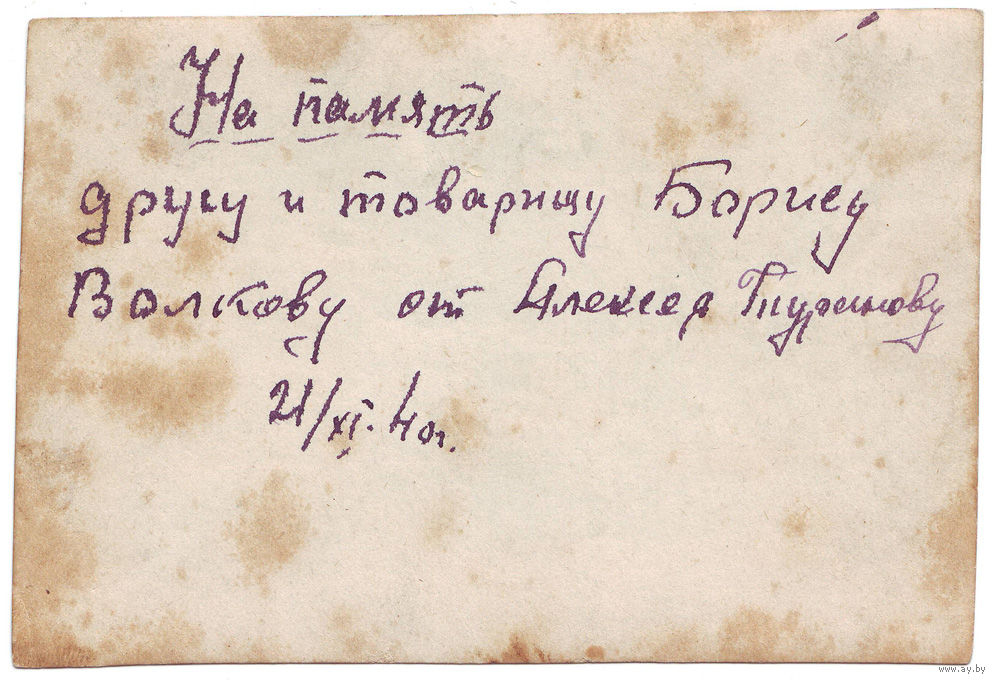 На память
другу и товарищу Борису
Волкову от Алексея
21/XI. 40г.
www.ay.by